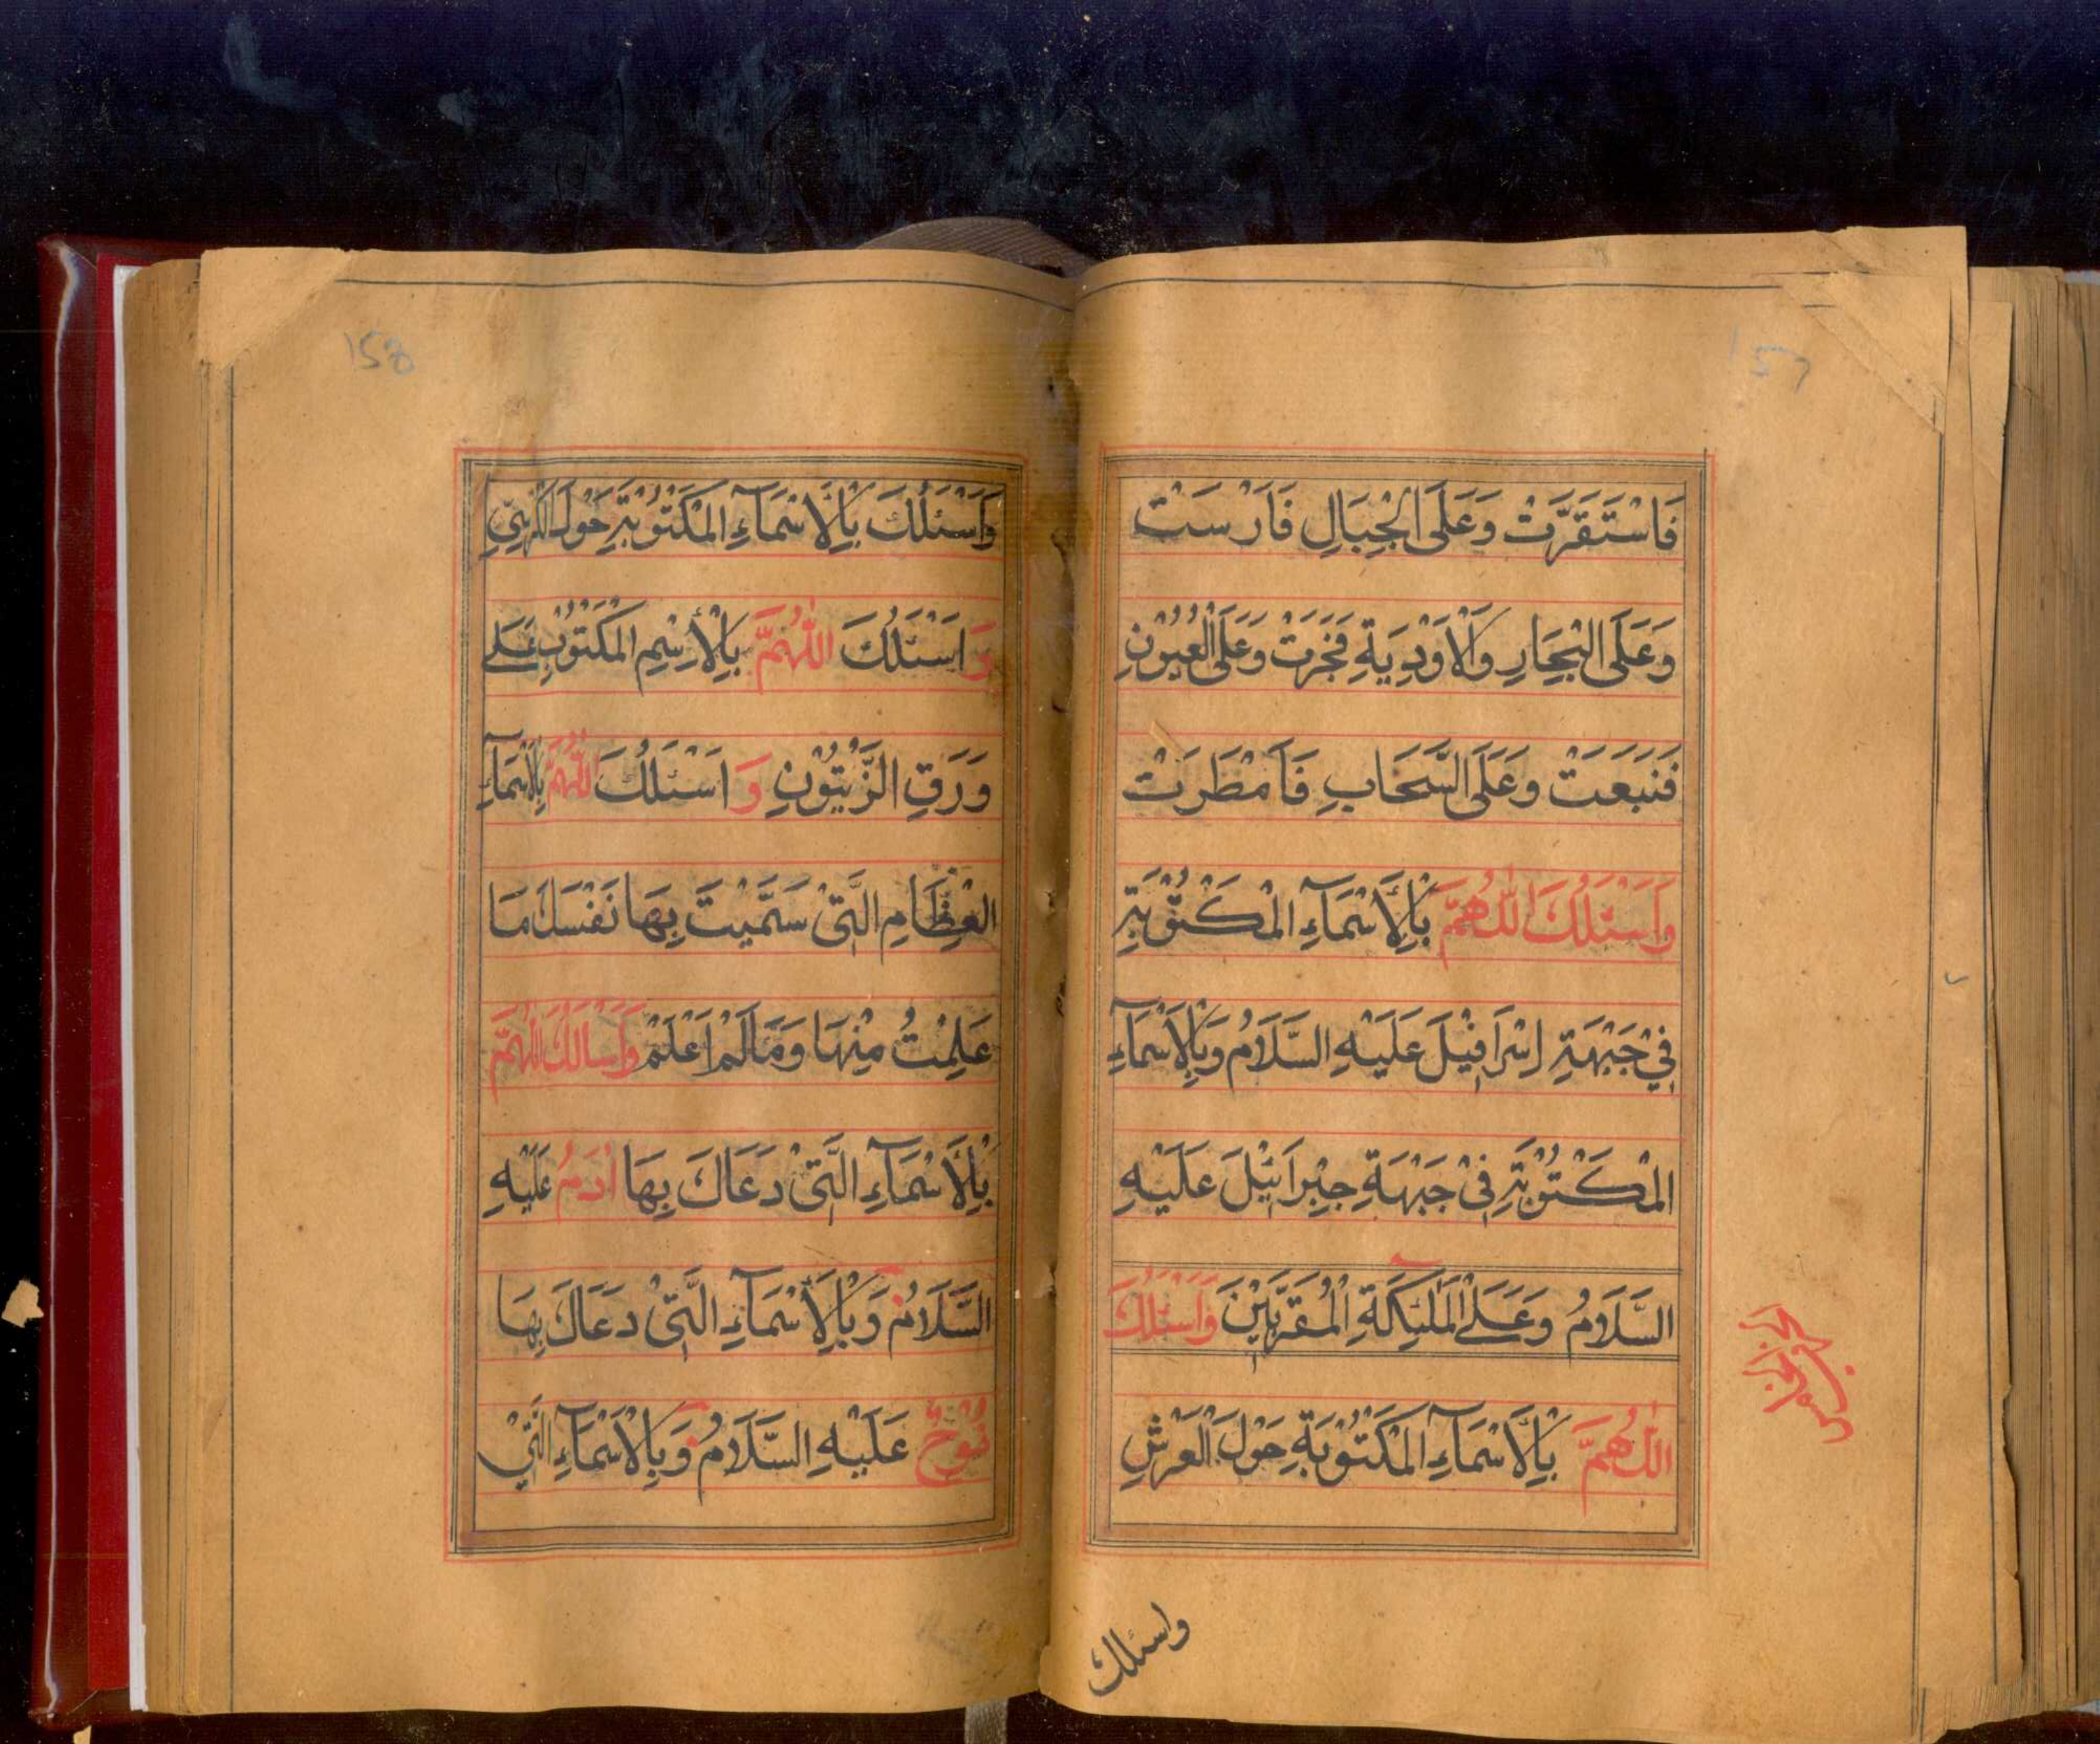 157
فَاسْتَقَرَّتْ وَعَلَى الْجِبَالِ فَاَرْسَتْ
وَعَلَى الْبِحَارِ وَالْاَوْدِيَةِ فَجَرَتْ وَعَلَى الْعُيُوْنِ
فَنَبَعَتْ وَعَلَى السَّحَابِ فَاَمْطَرَتْ
وَاَسْئَلُكَ اللّٰهُمَّ بِالْاَسْمَآءِ الْمَكْتُوْبَةِ
فِيْ جَبْهَةِ اِسْرَافِيْلَ عَلَيْهِ السَّلَامُ وَبِالْاَسْمَآءِ
الْمَكْتُوْبَةِ فِيْ جَبْهَةِ جِبْرَائِيْلَ عَلَيْهِ
السَّلَامُ وَعَلَى الْمَلٰئِكَةِ الْمُقَرَّبِيْنَ وَاَسْئَلُكَ
اللّٰهُمَّ بِالْاَسْمَآءِ الْمَكْتُوْبَةِ حَوْلَ الْعَرْشِ
واسئلك
158
وَاَسْئَلُكَ بِالْاَسْمَآءِ الْمَكْتُوْبَةِ حَوْلَ الْكُرْسِيِّ
وَاَسْئَلُكَ اللّٰهُمَّ بِالْاِسْمِ الْمَكْتُوْبِ عَلٰى
وَرَقِ الزَّيْتُوْنِ وَاَسْئَلُكَ اللّٰهُمَّ بِالْاَسْمَآءِ
الْعِظَامِ الَّتِيْ سَمَّيْتَ بِهَا نَفْسَكَ مَا
عَلِمْتُ مِنْهَا وَمَا لَمْ اَعْلَمْ وَاَسْاَلُكَ اللّٰهُمَّ
بِالْاَسْمَآءِ الَّتِيْ دَعَاكَ بِهَا اٰدَمُ عَلَيْهِ
السَّلَامُ وَبِالْاَسْمَآءِ الَّتِيْ دَعَاكَ بِهَا
نُوْحٌ عَلَيْهِ السَّلَامُ وَبِالْاَسْمَآءِ الَّتِيْ